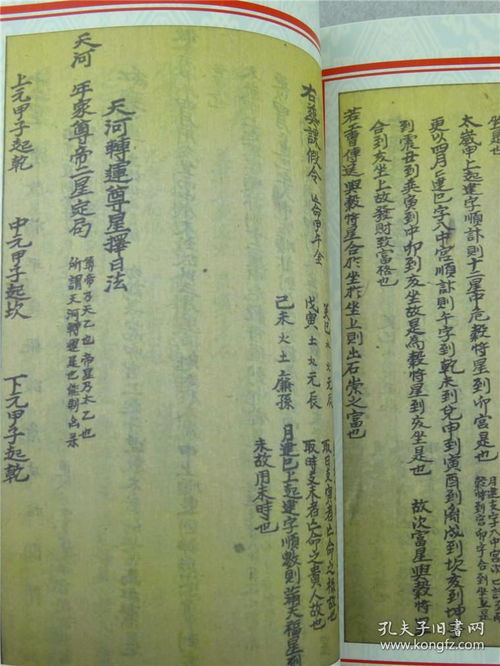 太歲甲上起建字順計則十二星中危穀將星到卯宮是也
更以四月建巳字入中宮順計則午字到乾未到兌申到寅酉到离戌到坎亥到坤
到震丑到巽寅到中卯到亥坐故是為穀將星到亥坐是也
故次富星與穀將星
合到亥坐上故發財致富格也
若工曺傳送與穀將星合於坐於坐上則出石崇之富也
右葬課假令
命甲午金
癸巳水火元辰
戊寅土火元辰
己未火土廉孫
取日支寅者亡命之祿故也
取時支未者亡命之貴人故也
月建巳上起建字順數則葡天福星到
未故用未時也
天河轉運尊星擇日法
天河
年家尊帝二星定局
尊帝乃天乙也帝星乃太乙也
所謂天河轉運是也能制凶杀
上元甲子起乾
中元甲子起坎
下元甲子起乾
孔夫子旧书网
kongfz.com